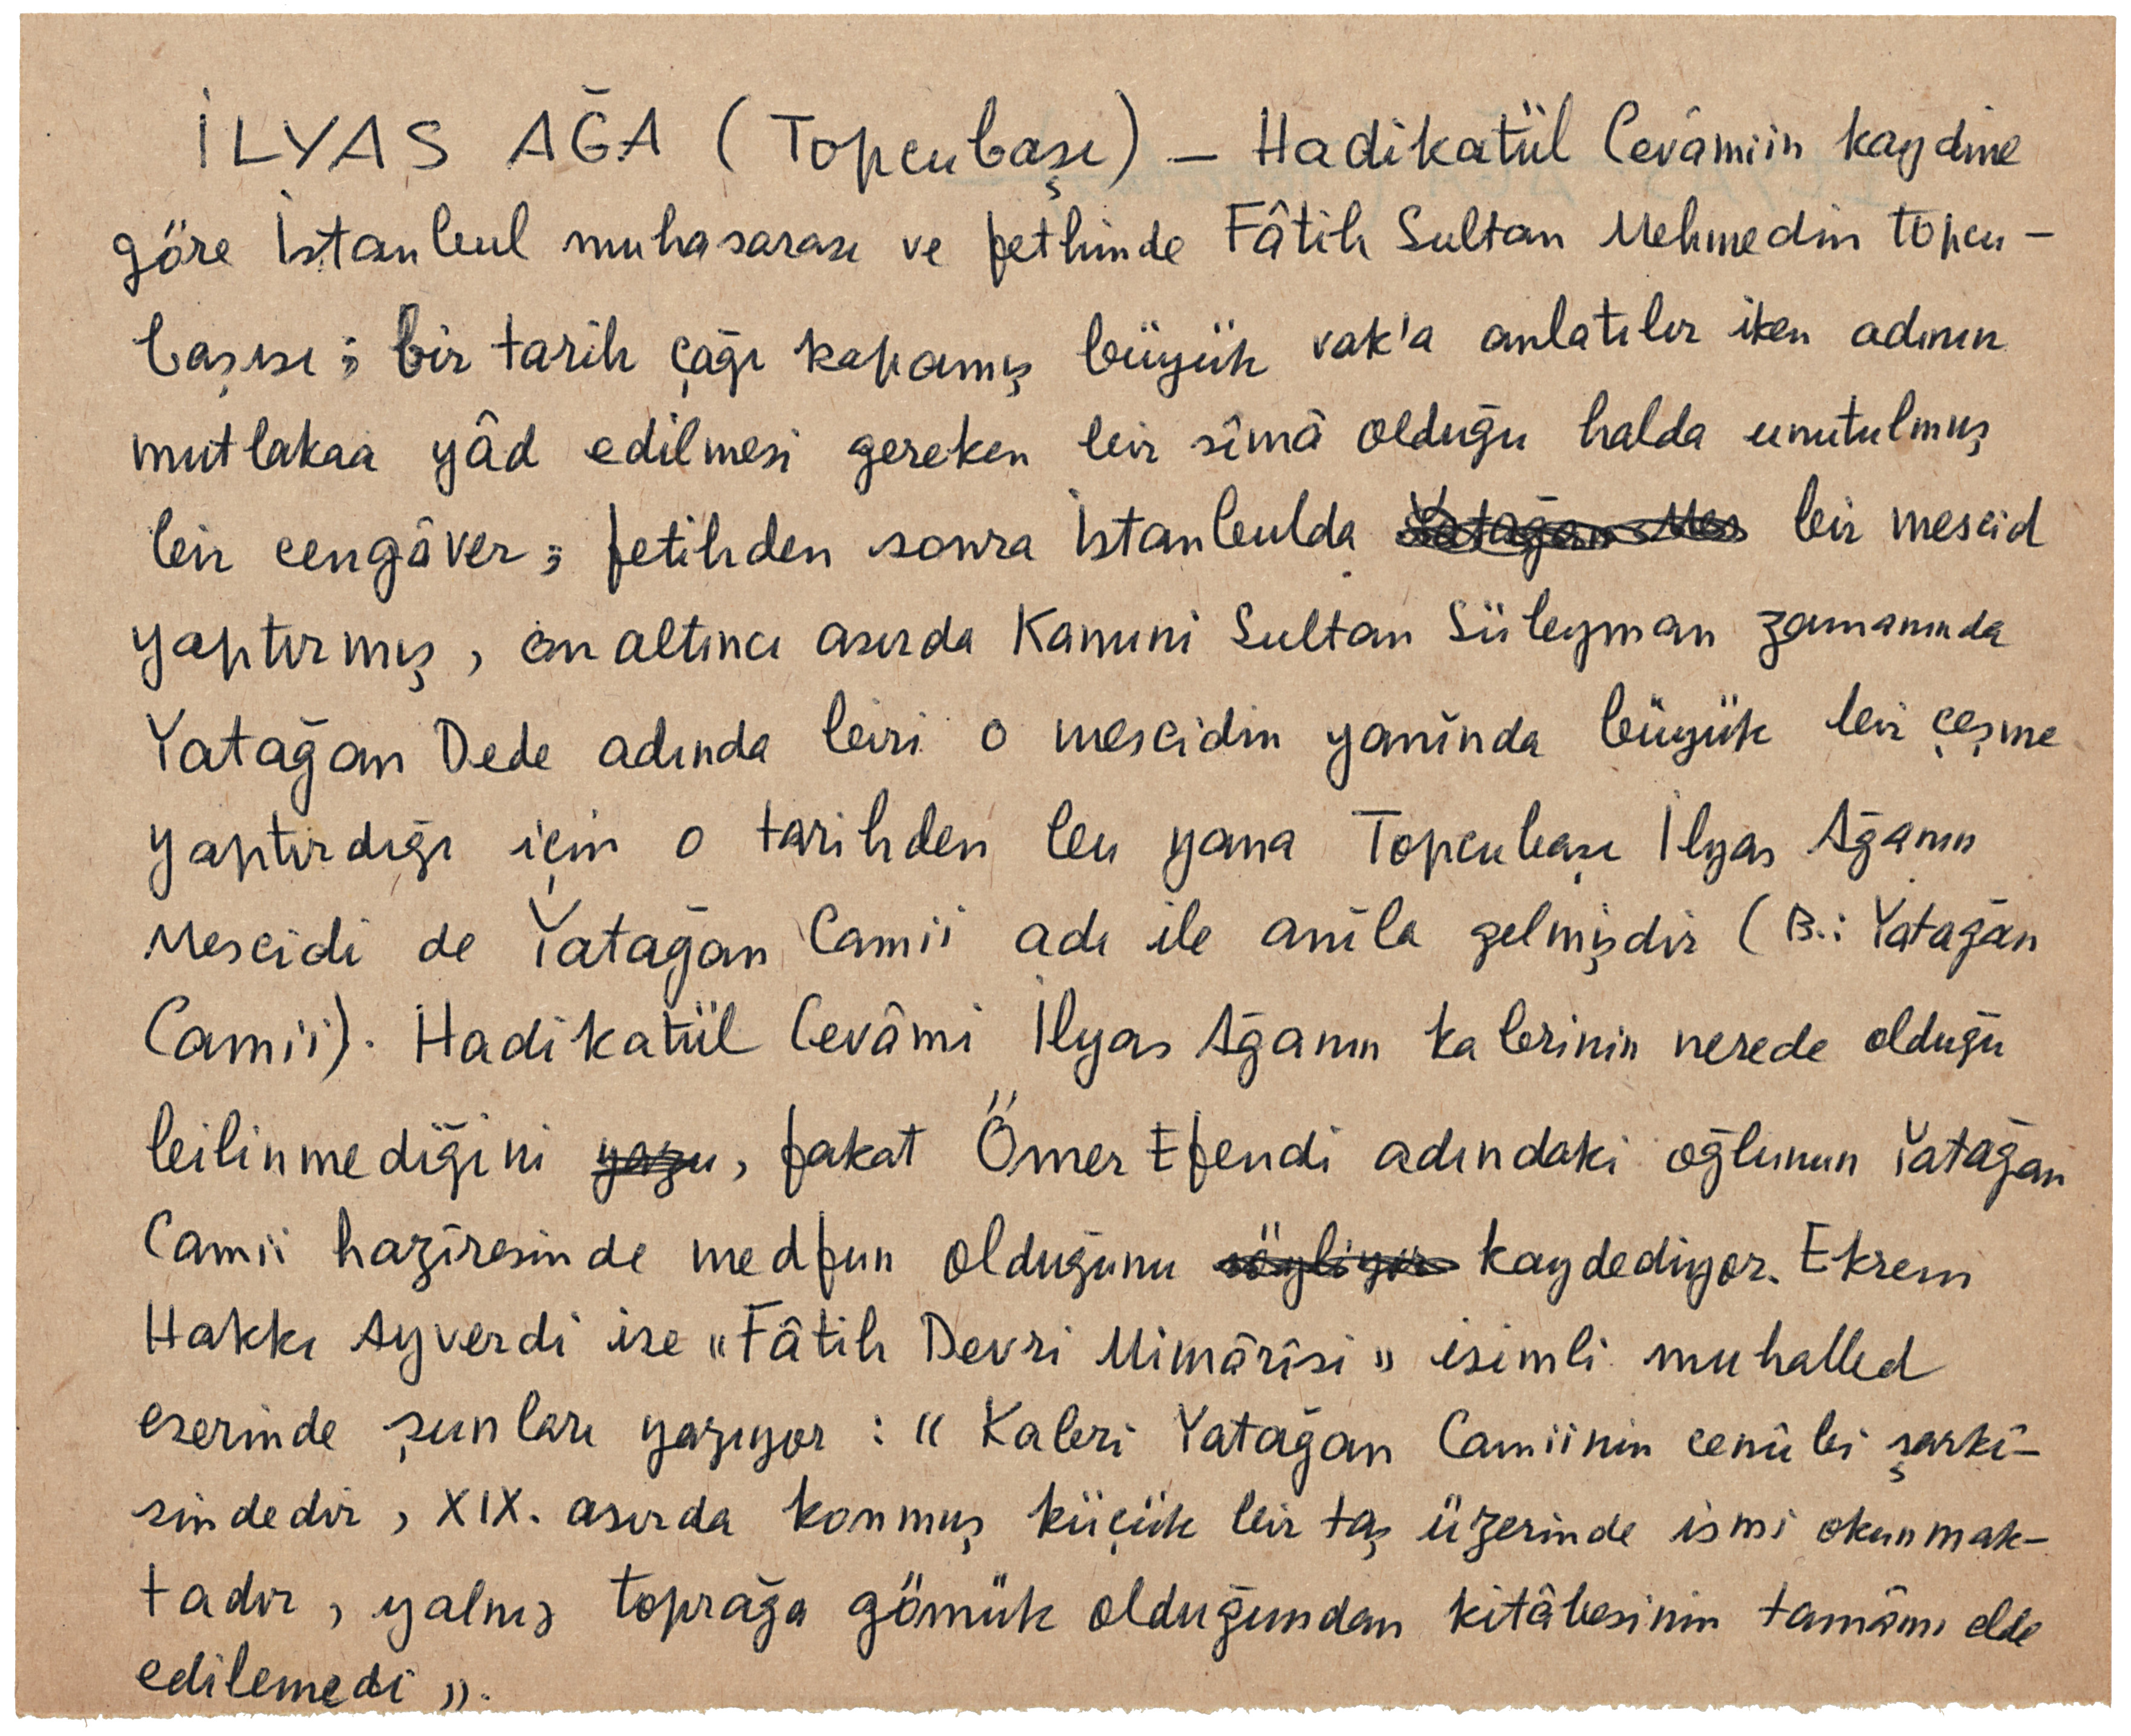 İLYAS AĞA (Topcubaşı) — Hadikatül Cevâmiin kaydine
göre İstanbul muhasarası ve fethinde Fâtih Sultan Mehmedin topcu-
başısı; bir tarih çağı kapamış büyük vak'a anlatılır iken adının
mutlakaa yâd edilmesi gereken bir sîmâ olduğu halda unutulmuş
bir cengâver; fetihden sonra İstanbulda Yatağan Mes bir mescid
yaptırmış, on altıncı asırda Kanuni Sultan Süleyman zamanında
Yatağan Dede adında biri o mescidin yanında büyük bir çeşme
yaptırdığı için o tarihden bu yana Topcubaşı İlyas Ağanın
Mescidi de Yatağan Camii adı ile anıla gelmişdir (B.: Yatağan
Camii). Hadikatül Cevâmi İlyas Ağanın kabrinin nerede olduğu
bilinmediğini yazu, fakat Ömer Efendi adındaki oğlunun Yatağan
Camii hazîresinde medfun olduğunu söyliyor kaydediyor. Ekrem
Hakkı Ayverdi ise «Fâtih Devri Mimârîsi» isimli muhalled
eserinde şunları yazıyor : «Kabri Yatağan Camiinin cenûbi şarkî-
sindedir, XIX. asırda konmuş küçük bir taş üzerinde ismi okunmak-
tadır, yalnış toprağa gömük olduğundan kitâbesinin tamâmı elde
edilemedi».